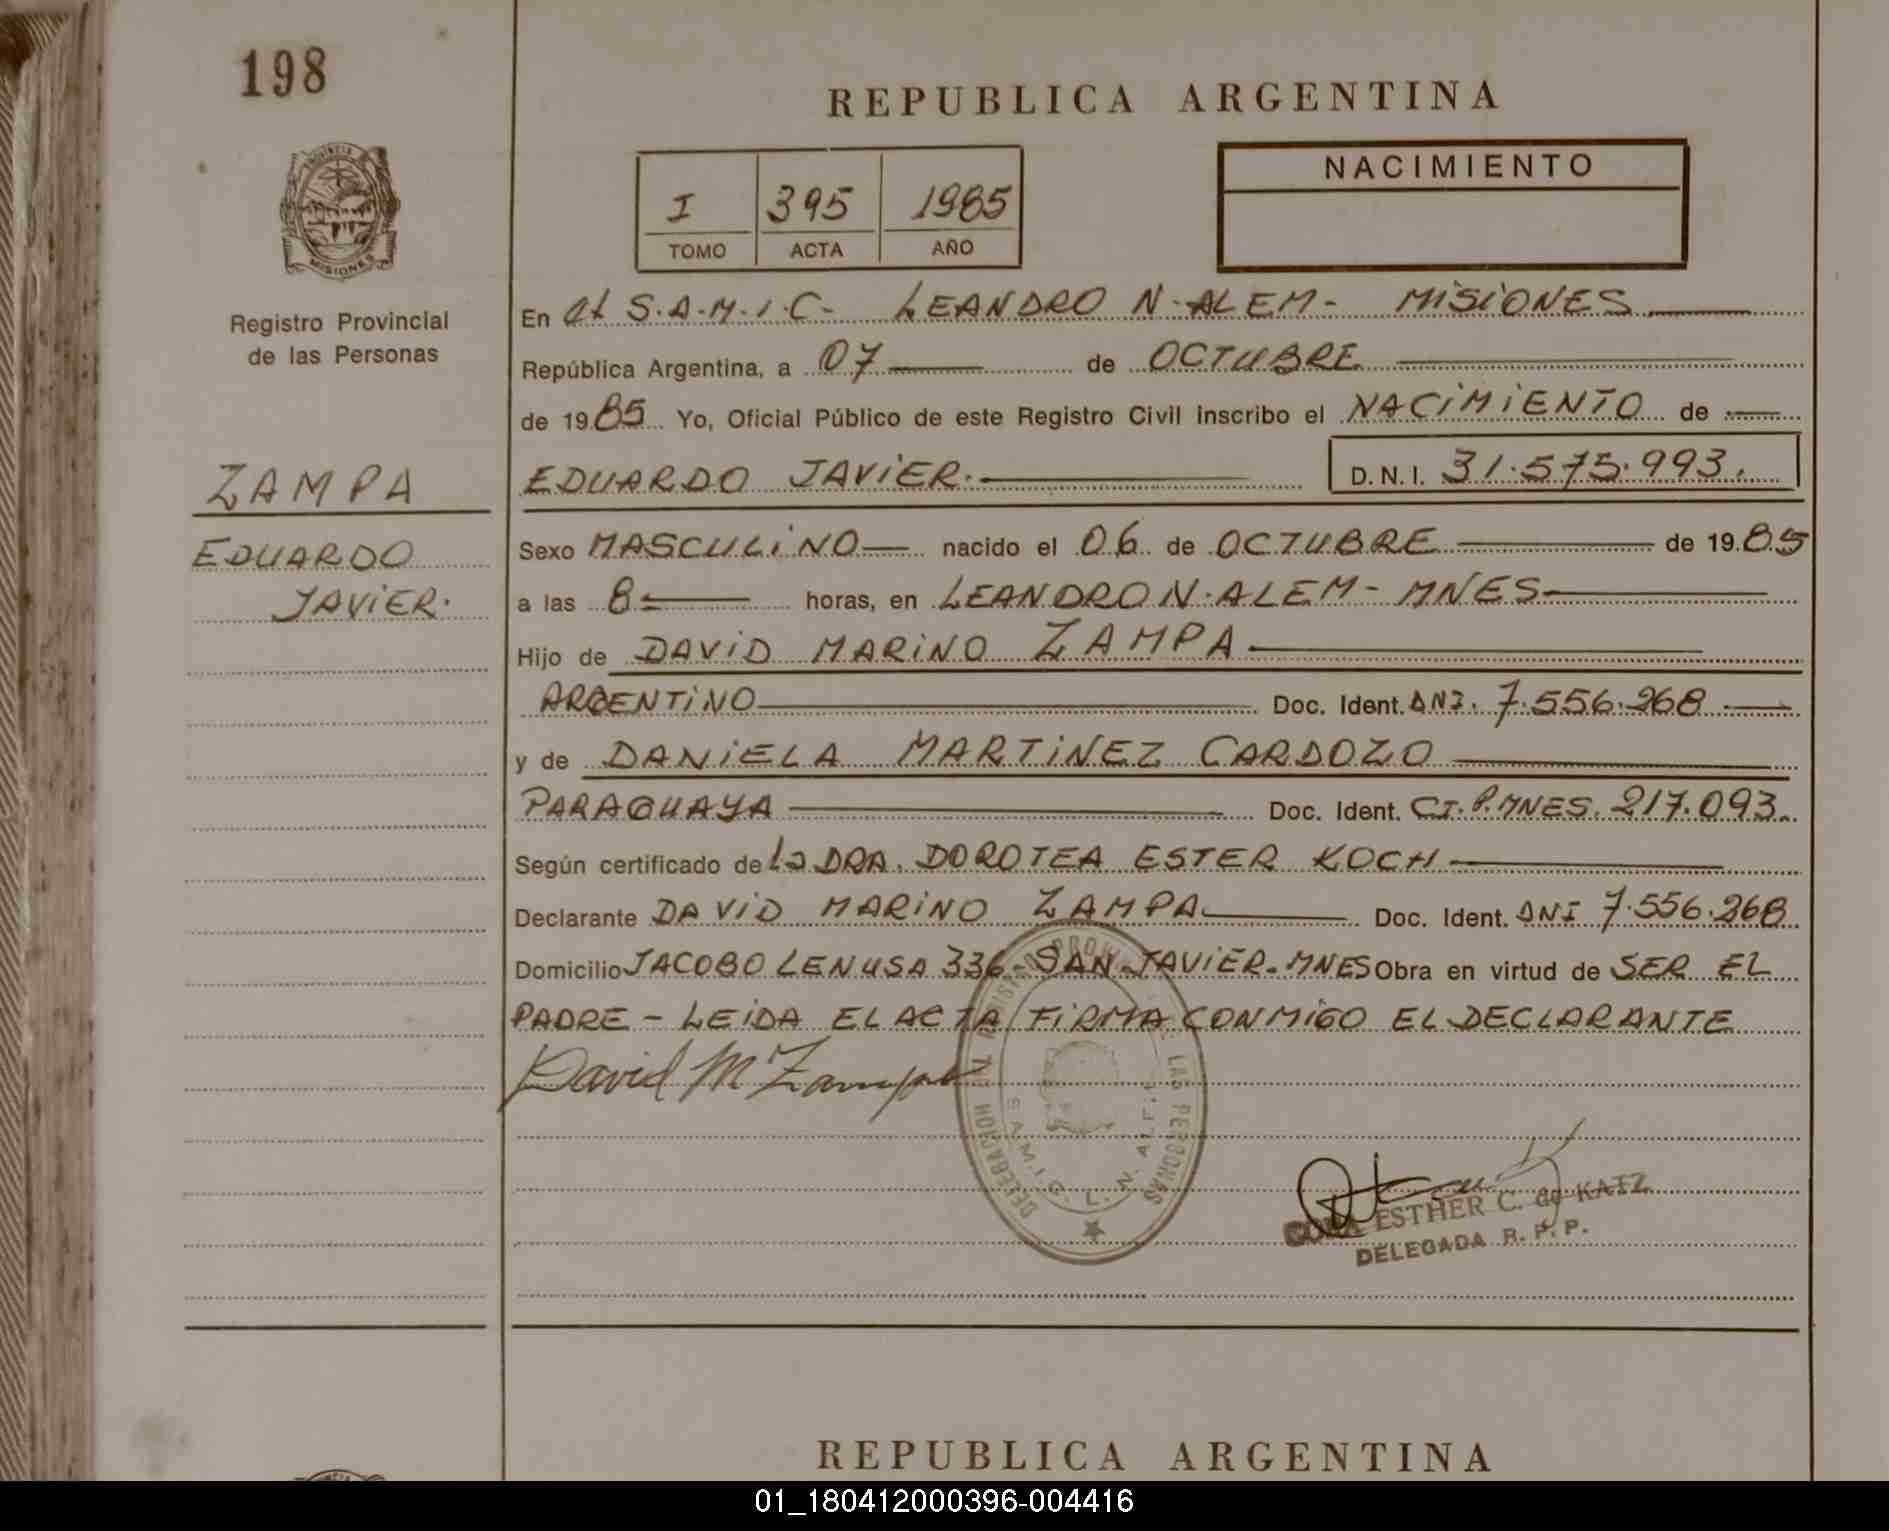 198
REPUBLICA ARGENTINA
PROVINCIA
MISIONES
Registro Provincial
de las Personas
I 395 1985
TOMO ACTA AÑO
NACIMIENTO
En el S.A.M.I.C- LEANDRO N. ALEM- MISIONES
República Argentina, a 07 de OCTUBRE
de 1985 Yo, Oficial Público de este Registro Civil inscribo el NACIMIENTO de
ZAMPA
EDUARDO JAVIER.
D.N.I. 31.575.993.
EDUARDO
JAVIER.
Sexo MASCULINO nacido el 06 de OCTUBRE de 1985
a las 8 horas, en LEANDRO N. ALEM- MNES
Hijo de DAVID MARINO ZAMPA
ARGENTINO Doc. Ident. DNI. 7.556.268
y de DANIELA MARTINEZ CARDOZO
PARAGUAYA Doc. Ident. CI. P. MNES. 217.093.
Según certificado de la DRA. DOROTEA ESTER KOCH
Declarante DAVID MARINO ZAMPA Doc. Ident. DNI 7.556.268
Domicilio JACOBO LENUSA 336- SAN JAVIER- MNES Obra en virtud de SER EL
PADRE - LEIDA EL ACTA FIRMA CONMIGO EL DECLARANTE
David M Zampa
DELEGACION DEL LAS PERSONAS
S.A.M.I.C. L. N. ALEM
ESTHER C. de KATZ
DELEGADA R. P. P.
REPUBLICA ARGENTINA
01_180412000396-004416